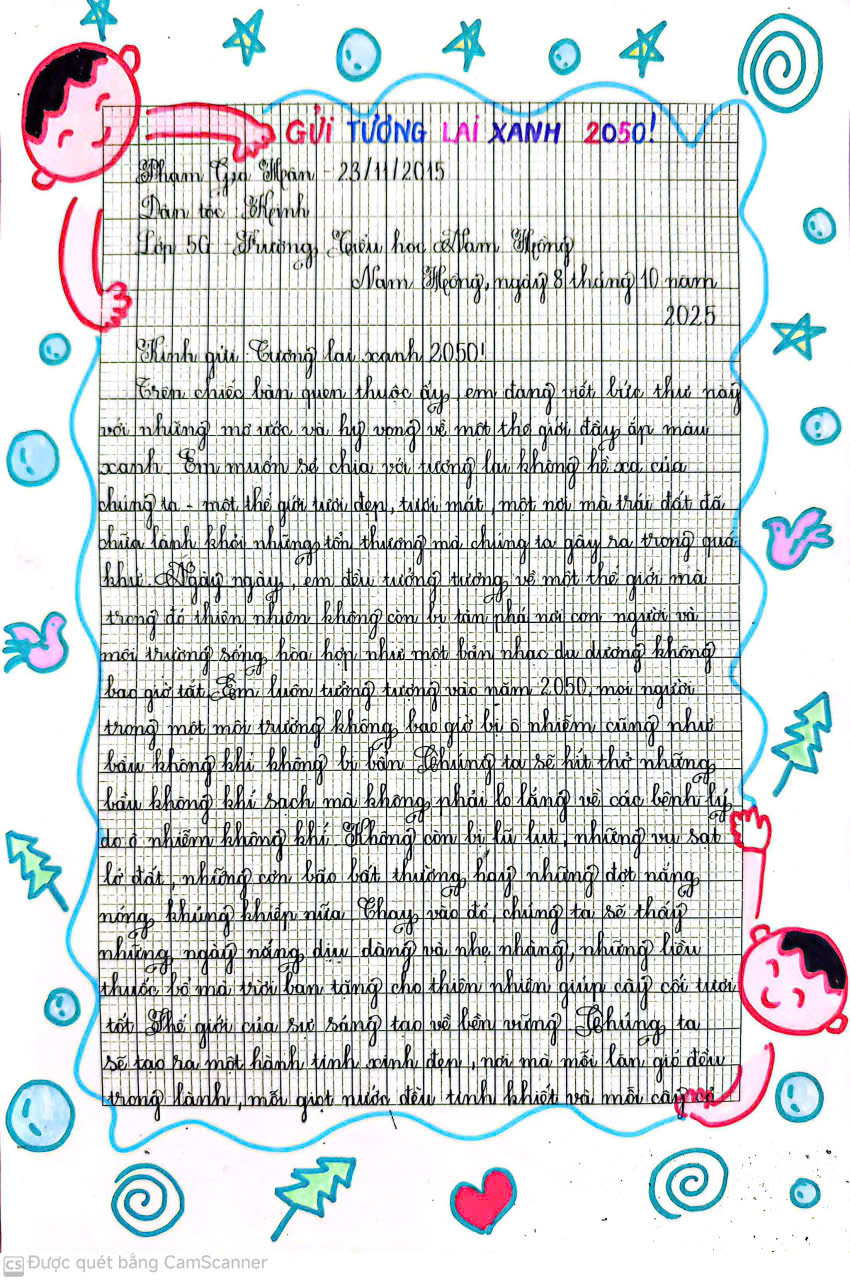 GỬI TƯƠNG LAI XANH 2050!
Phạm Gia Hân - 23/11/2015
Dân tộc: Kinh
Lớp 5G Trường Tiểu học Nam Hồng
Nam Hồng, ngày 8 tháng 10 năm
2025
Kính gửi: Tương lai xanh 2050!
Trên chiếc bàn quen thuộc ấy, em đang viết bức thư này
với những mơ ước và hy vọng về một thế giới đầy ắp màu
xanh. Em muốn sẻ chia với tương lai không hề xa của
chúng ta - một thế giới tươi đẹp, tươi mát, một nơi mà trái đất đã
chữa lành khỏi những tổn thương mà chúng ta gây ra trong quá
khứ. Ngày ngày, em đều tưởng tượng về một thế giới mà
trong đó thiên nhiên không còn bị tàn phá nơi con người và
môi trường sống hòa hợp như một bản nhạc du dương không
bao giờ tắt. Em luôn tưởng tượng vào năm 2050, mọi người
trong một môi trường không bao giờ bị ô nhiễm cũng như
bầu không khí không bị bẩn. Chúng ta sẽ hít thở những
bầu không khí sạch mà không phải lo lắng về các bệnh lý
do ô nhiễm không khí. Không còn bị lũ lụt, những vụ sạt
lở đất, những cơn bão bất thường hay những đợt nắng
nóng khủng khiếp nữa. Thay vào đó, chúng ta sẽ thấy
những ngày nắng dịu dàng và nhẹ nhàng, những liều
thuốc bổ mà trời ban tặng cho thiên nhiên giúp cây cối tươi
tốt. Thế giới của sự sáng tạo về bền vững. Chúng ta
sẽ tạo ra một hành tinh xinh đẹp, nơi mà mỗi làn gió đều
trong lành, mỗi giọt nước đều tinh khiết và mỗi cây cỏ
CS Được quét bằng CamScanner